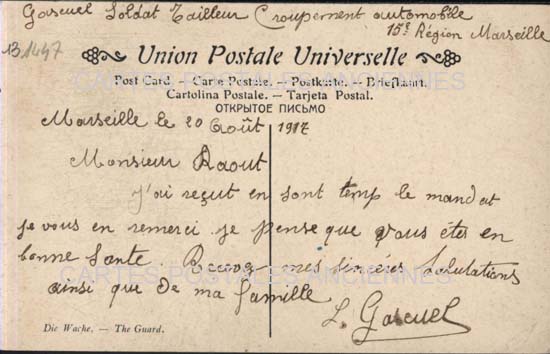 Gascuel Soldat Tailleur Croupement automobile
15e Région Marseille
B 1447
Union Postale Universelle
Post Card. — Carte Postale. — Postkarte. — Briefkaart.
Cartolina Postale. — Tarjeta Postal.
ОТКРЫТОЕ ПИСЬМО
CARTES POSTALES ANCIENNES
Marseille le 20 Août 1917
Monsieur Raout
j'ai reçut en sont temp le mandat
je vous en remerci je pense que vous êtes en
bonne santé. Recevez mes sincères salutations
CARTES POSTALES ANCIENNES
ainsi que de ma famille
L. Gascuel
Die Wache. — The Guard.